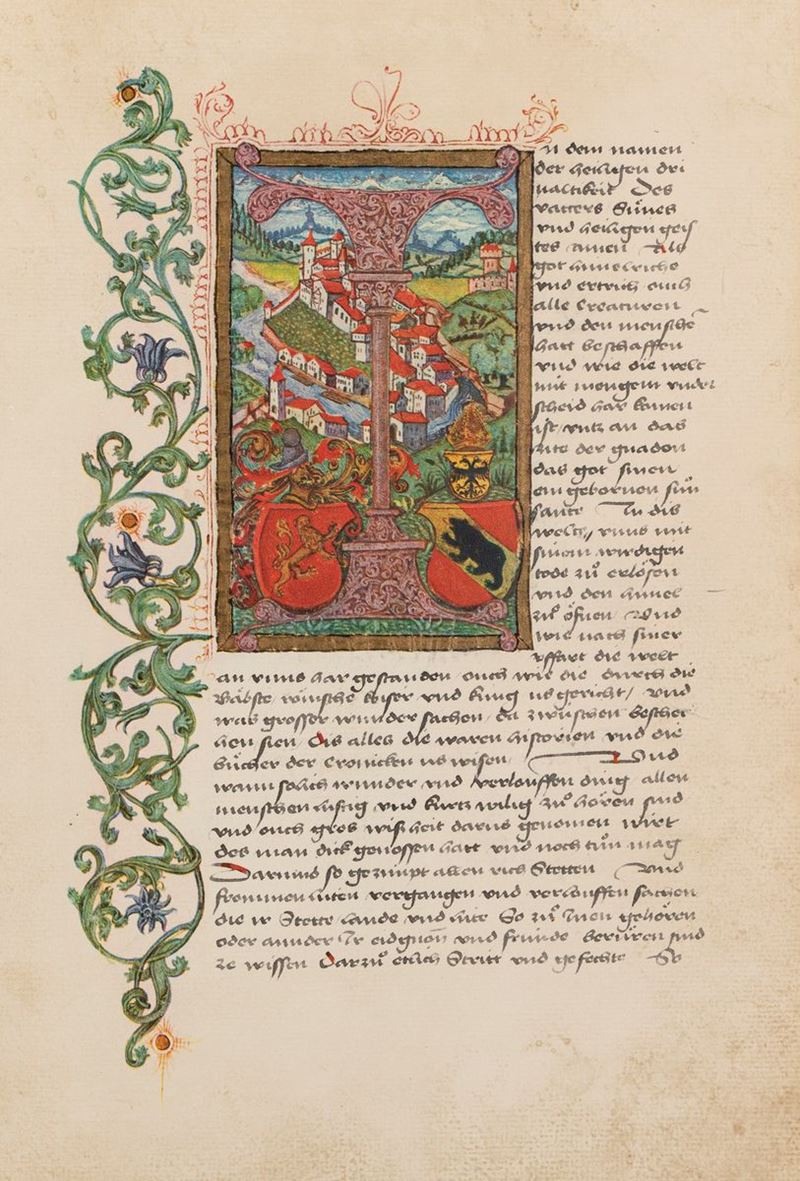 n dem namen
der heiligen dri
ualtikeit Des
vatters Súnes
vnd heiligen geis
tes amen Als
got himelriche
vnd ertrich ouch
alle Creaturen
vnd den mensche
hatt beschaffen
vnd wie die welt
mit mengem vnder
scheid har komen
ist vntz an das
zite der gnaden
das got sinen
eingebornen sun
sante In dis
welt / vnns mit
sinem wirdigen
tode zů erlösen
vnd den himel
zů öfnen Vnd
wie nach siner
vffart die welt
an vnns har gestanden ouch wie die durch die
Bäbste römische keiser vnd kúng usgericht / vnd
was grosser wunder sachen da zwúschen beschec
hen sien Dis alles die waren historien vnd die
bücher der Cronicken us wisen Vnd
wann solich wunder vnd verlouffen ding allen
menschen lustig vnd kurtzwilig zů hören sind
vnd ouch gros wisheit darus genomen wirt
des man dick genossen hatt vnd noch tůn mag
Darumb so gezimpt allen rich Stetten Vnd
frommen lúten vergangen vnd verlouffen sachen
die ir Stette lande vnd lúte So zů Inen gehören
oder annder Ir eidgnon vnd frúnde berüren sind
ze wissen Darzů etlich Stritt vnd gefechte So